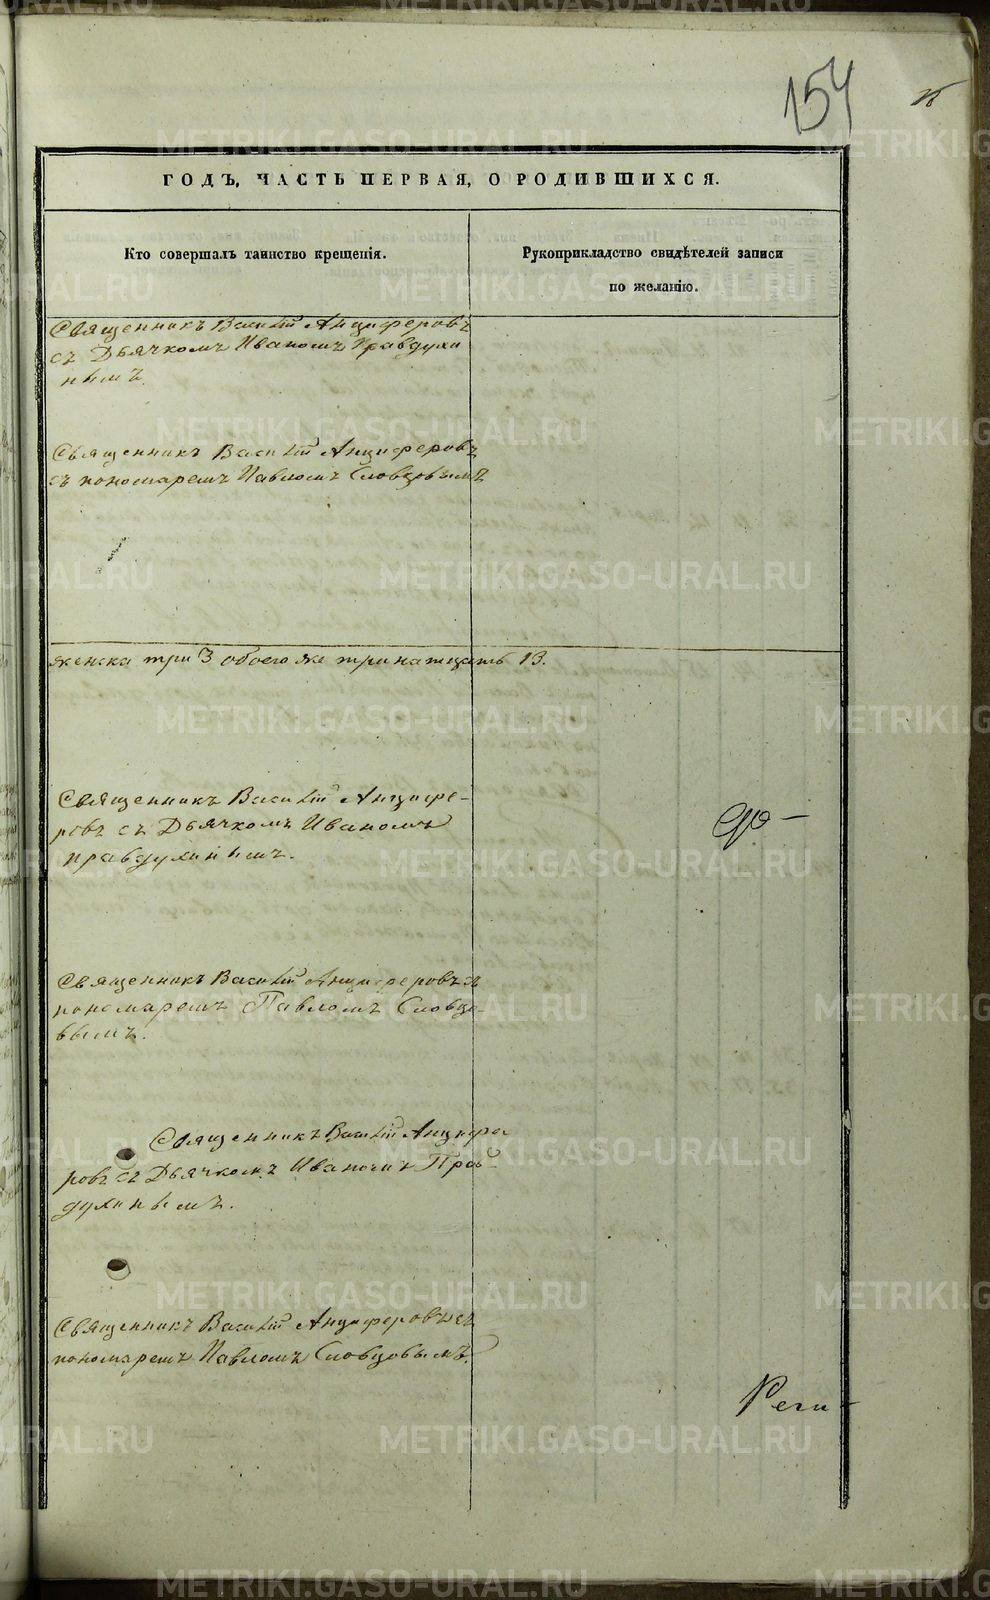 154
ГОДЪ, ЧАСТЬ ПЕРВАЯ, О РОДИВШИХСЯ.
Кто совершалъ таинство крещенія.
Рукоприкладство свидѣтелей записи
по желанію.
Священникъ Василій Анциферовъ
съ Дьячкомъ Иваномъ Правдухи
нымъ.
Священникъ Василій Анциферовъ
съ пономаремъ Павломъ Словцовымъ
женска три 3 обоего же тринатцать 13.
Священникъ Василій Анцифе-
ровъ съ Дьячкомъ Иваномъ
правдухинымъ.
Священникъ Василій Анциферовъ съ
пономаремъ Павломъ Словцо-
вымъ.
Священникъ Василій Анцифе
ровъ съ Дьячкомъ Иваномъ Прав-
духинымъ.
Священникъ Василій Анциферовъ съ
пономаремъ Павломъ Словцовымъ.
METRIKI.GASO-URAL.RU